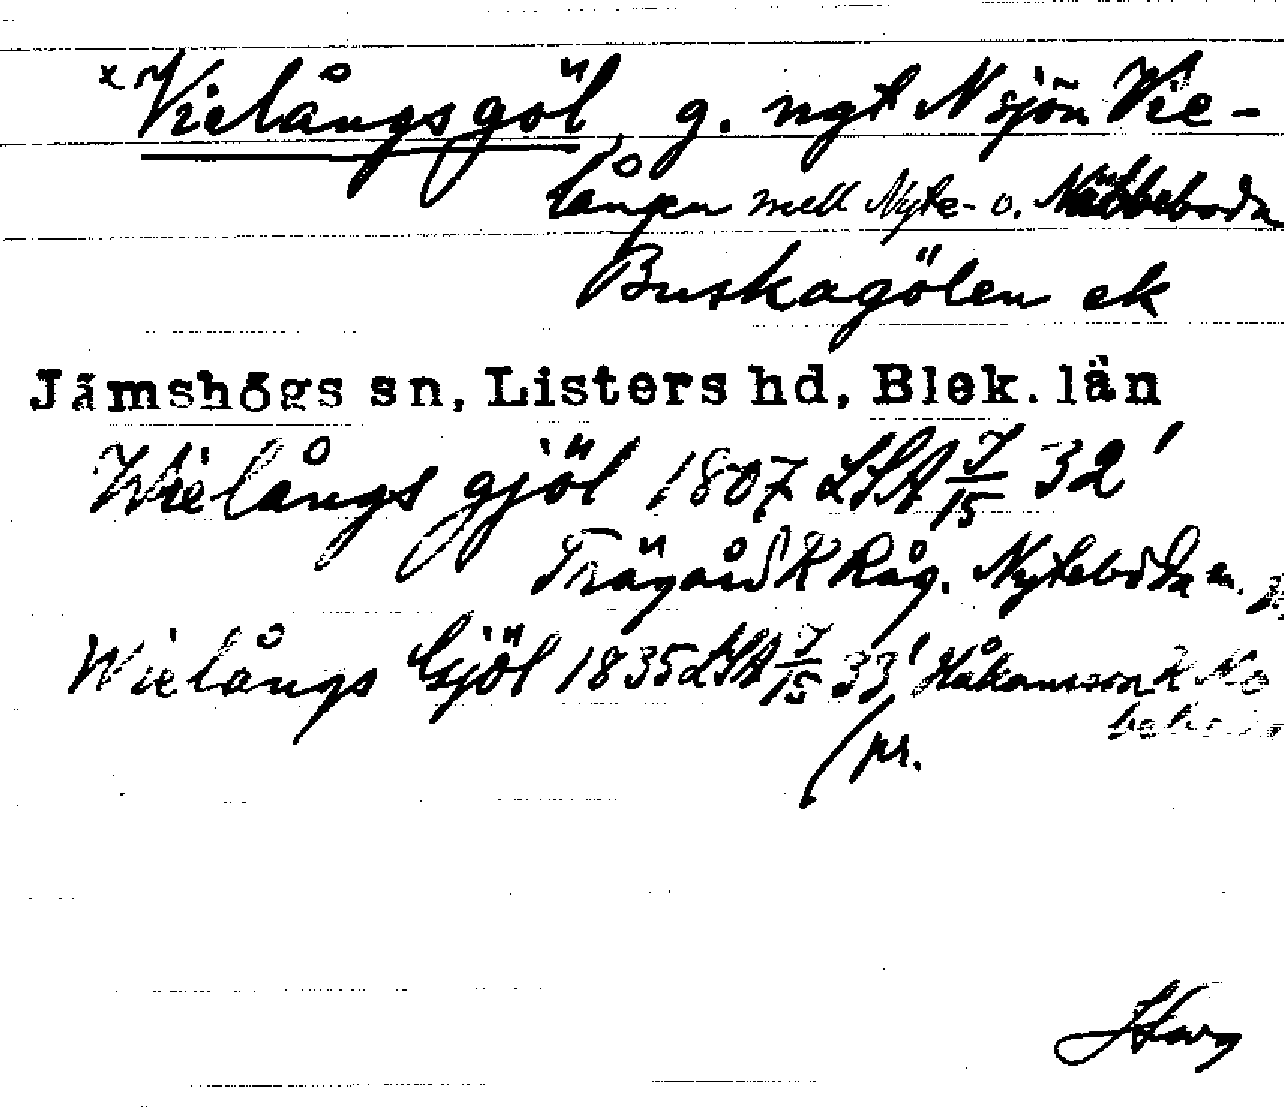 x Vielångsgöl, g. ngt N sjön Vie-
lången mell Nyte- o. Näbbeboda
Buskagölen ek
Jämshögs sn, Listers hd, Blek. län
Wielångs gjöl 1807 LSA J/15 32'
Trägård K Råg. Nyteboda m.
Wielångs Gjöl 1835 LSA J/15 33' Håkansson K
(pr.